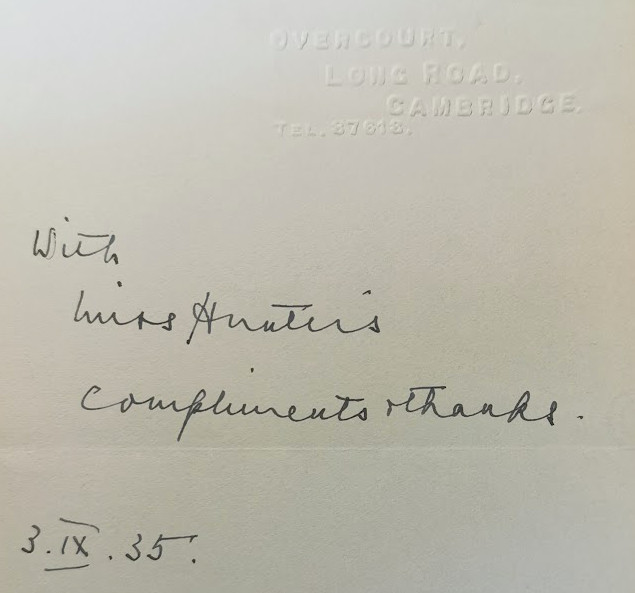 OVERCOURT,
LONG ROAD,
CAMBRIDGE.
TEL. 87613.
With
Miss Hunter's
compliments & thanks.
3.IX.35.